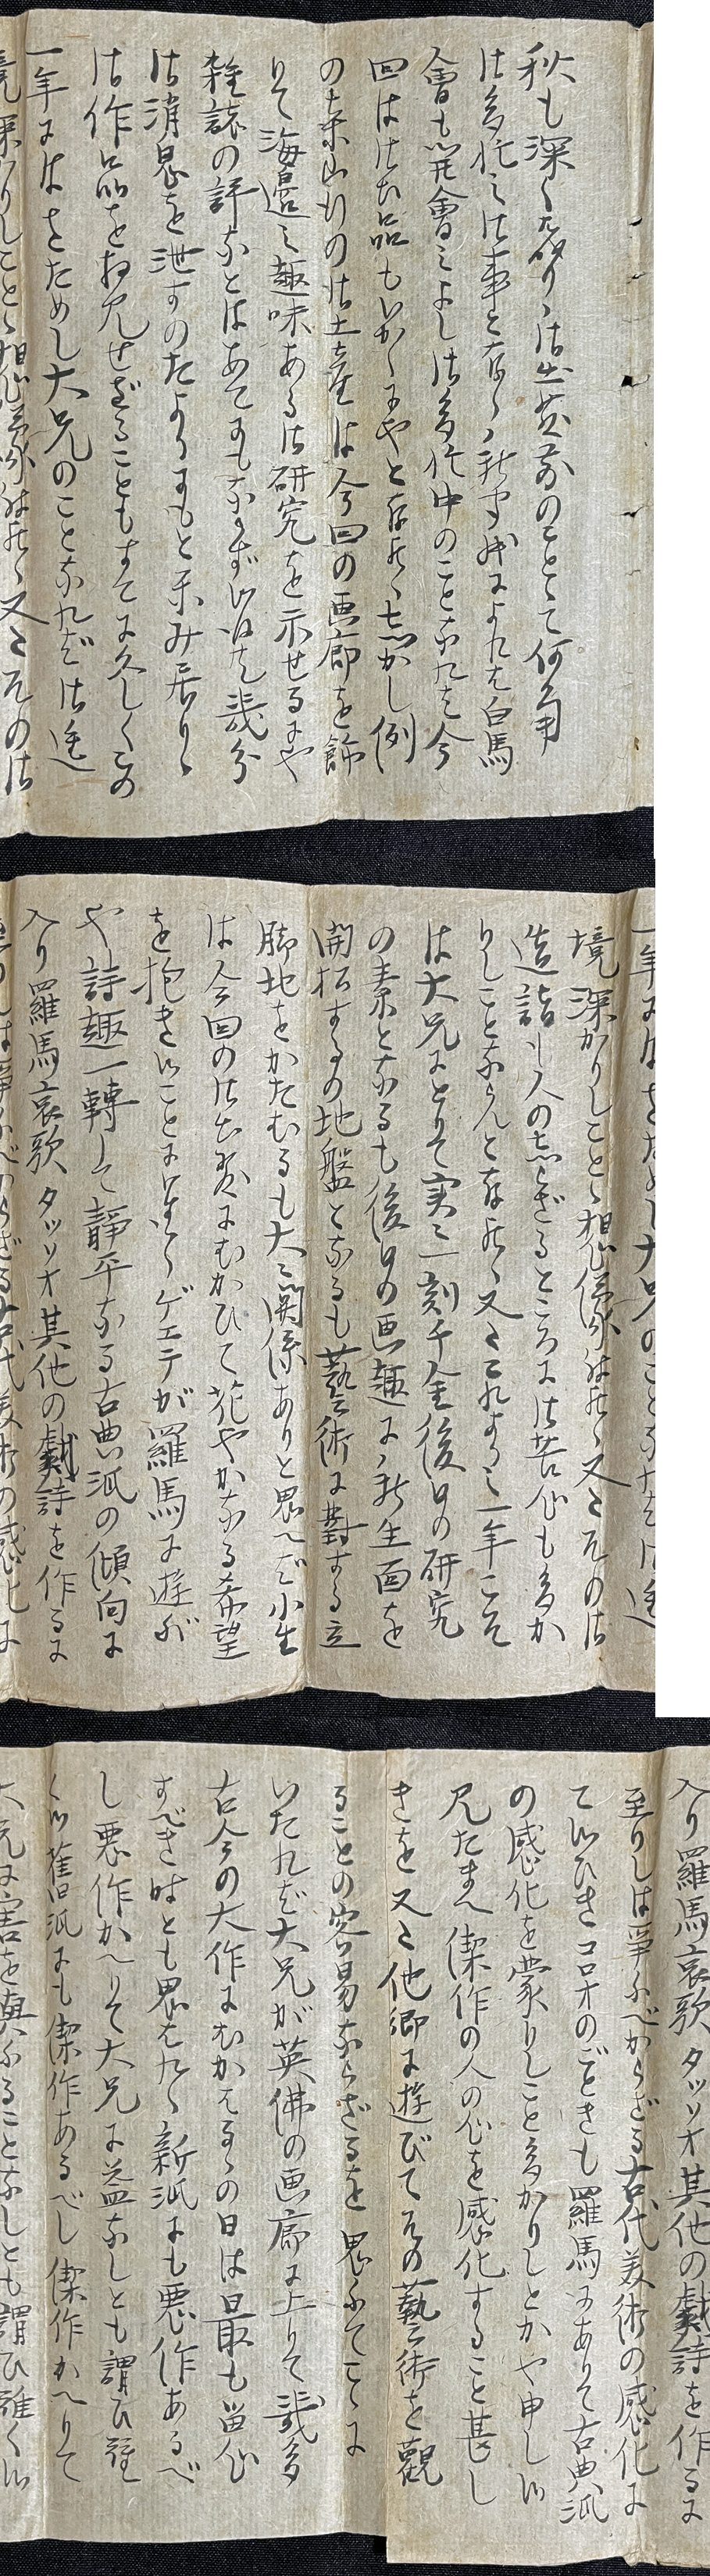 秋も深く相成り候御出発前のことゝて何角
御多忙之御事と存候新聞紙によれば白馬
會も開會之よし御多忙中のことなれば今
回は御出品もいかゞにやと存候しかし例
の葉山行の御土産は今回の画廊を飾
りて海邉之趣味ある御研究を示せるにや
雑誌の評などはあてにもならず候得共幾分
御消息を泄すのたよりにもと楽み居り候
御作品を拝見せざることもすでに久しくこの
一年にはをためし大兄のことなれば御進
境深かりしことゝ想像仕候又々その御
造詣の人の志らざるところに御苦心も多か
りしことならんと存候又々これよりの一年こそ
は大兄にとりて実に一刻千金後日の研究
の素となるも後日の画趣に新生面を
開拓するの地盤となるも藝術に對する立
脚地をかたむるも大に関係ありと思へば小生
は今回の御出発にむかひて花やかなる希望
を抱き候ことに御座候ゲエテが羅馬に遊び
や詩趣一轉して静平なる古典派の傾向に
入り羅馬哀歌タッソオ其他の戯詩を作るに
至りしは争ふべからざる古代美術の感化に
て候ひきコロオのごときも羅馬にありて古典派
の感化を蒙りしこと多かりしとかや申し候
見たまへ傑作の人の心を感化すること甚し
きを又々他郷に遊びてその藝術を觀
ることの容易ならざるを思ふてこゝに
いたれば大兄が英佛の画廊に上りて幾多
古今の大作にむかはるゝの日は最も留心
すべき時とも思はれ候新派にも悪作あるべ
し悪作かへりて大兄に益なしとも謂ひ難
く候舊派にも傑作あるべし傑作かへりて
大兄に害を與ふることなしとも謂ひ難く候